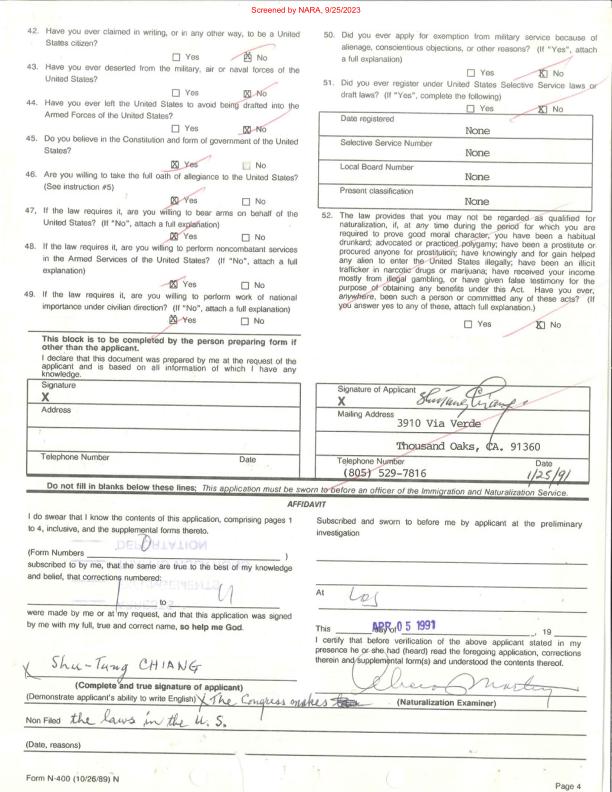 Screened by NARA, 9/25/2023
42. Have you ever claimed in writing, or in any other way, to be a United
States citizen?
Yes X No
43. Have you ever deserted from the military, air or naval forces of the
United States?
Yes X No
44. Have you ever left the United States to avoid being drafted into the
Armed Forces of the United States?
Yes X No
45. Do you believe in the Constitution and form of government of the United
States?
X Yes No
46. Are you willing to take the full oath of allegiance to the United States?
(See instruction #5)
X Yes No
47. If the law requires it, are you willing to bear arms on behalf of the
United States? (If "No", attach a full explanation)
X Yes No
48. If the law requires it, are you willing to perform noncombatant services
in the Armed Services of the United States? (If "No", attach a full
explanation)
X Yes No
49. If the law requires it, are you willing to perform work of national
importance under civilian direction? (If "No", attach a full explanation)
X Yes No
This block is to be completed by the person preparing form if
other than the applicant.
I declare that this document was prepared by me at the request of the
applicant and is based on all information of which I have any
knowledge.
Signature
X
Address
Telephone Number Date
50. Did you ever apply for exemption from military service because of
alienage, conscientious objections, or other reasons? (If "Yes", attach
a full explanation)
Yes X No
51. Did you ever register under United States Selective Service laws or
draft laws? (If "Yes", complete the following)
Yes X No
Date registered
None
Selective Service Number
None
Local Board Number
None
Present classification
None
52. The law provides that you may not be regarded as qualified for
naturalization, if, at any time during the period for which you are
required to prove good moral character, you have been a habitual
drunkard; advocated or practiced polygamy; have been a prostitute or
procured anyone for prostitution; have knowingly and for gain helped
any alien to enter the United States illegally; have been an illicit
trafficker in narcotic drugs or marijuana; have received your income
mostly from illegal gambling, or have given false testimony for the
purpose of obtaining any benefits under this Act. Have you ever,
anywhere, been such a person or committed any of these acts? (If
you answer yes to any of these, attach full explanation.)
Yes X No
Signature of Applicant
X
Mailing Address
3910 Via Verde
Thousand Oaks, CA. 91360
Telephone Number Date
(805) 529-7816 1/25/91
Do not fill in blanks below these lines; This application must be sworn to before an officer of the Immigration and Naturalization Service.
AFFIDAVIT
I do swear that I know the contents of this application, comprising pages 1
to 4, inclusive, and the supplemental forms thereto.
(Form Numbers )
subscribed to by me, that the same are true to the best of my knowledge
and belief, that corrections numbered:
to
were made by me or at my request, and that this application was signed
by me with my full, true and correct name, so help me God.
X Shu-Tung CHIANG
(Complete and true signature of applicant)
(Demonstrate applicant's ability to write English) X The Congress makes
Non Filed the laws in the U.S.
(Date, reasons)
Subscribed and sworn to before me by applicant at the preliminary
investigation
At Los
This day of APR 05 1991, 19
I certify that before verification of the above applicant stated in my
presence he or she had (heard) read the foregoing application, corrections
therein and supplemental form(s) and understood the contents thereof.
(Naturalization Examiner)
Form N-400 (10/26/89) N
Page 4